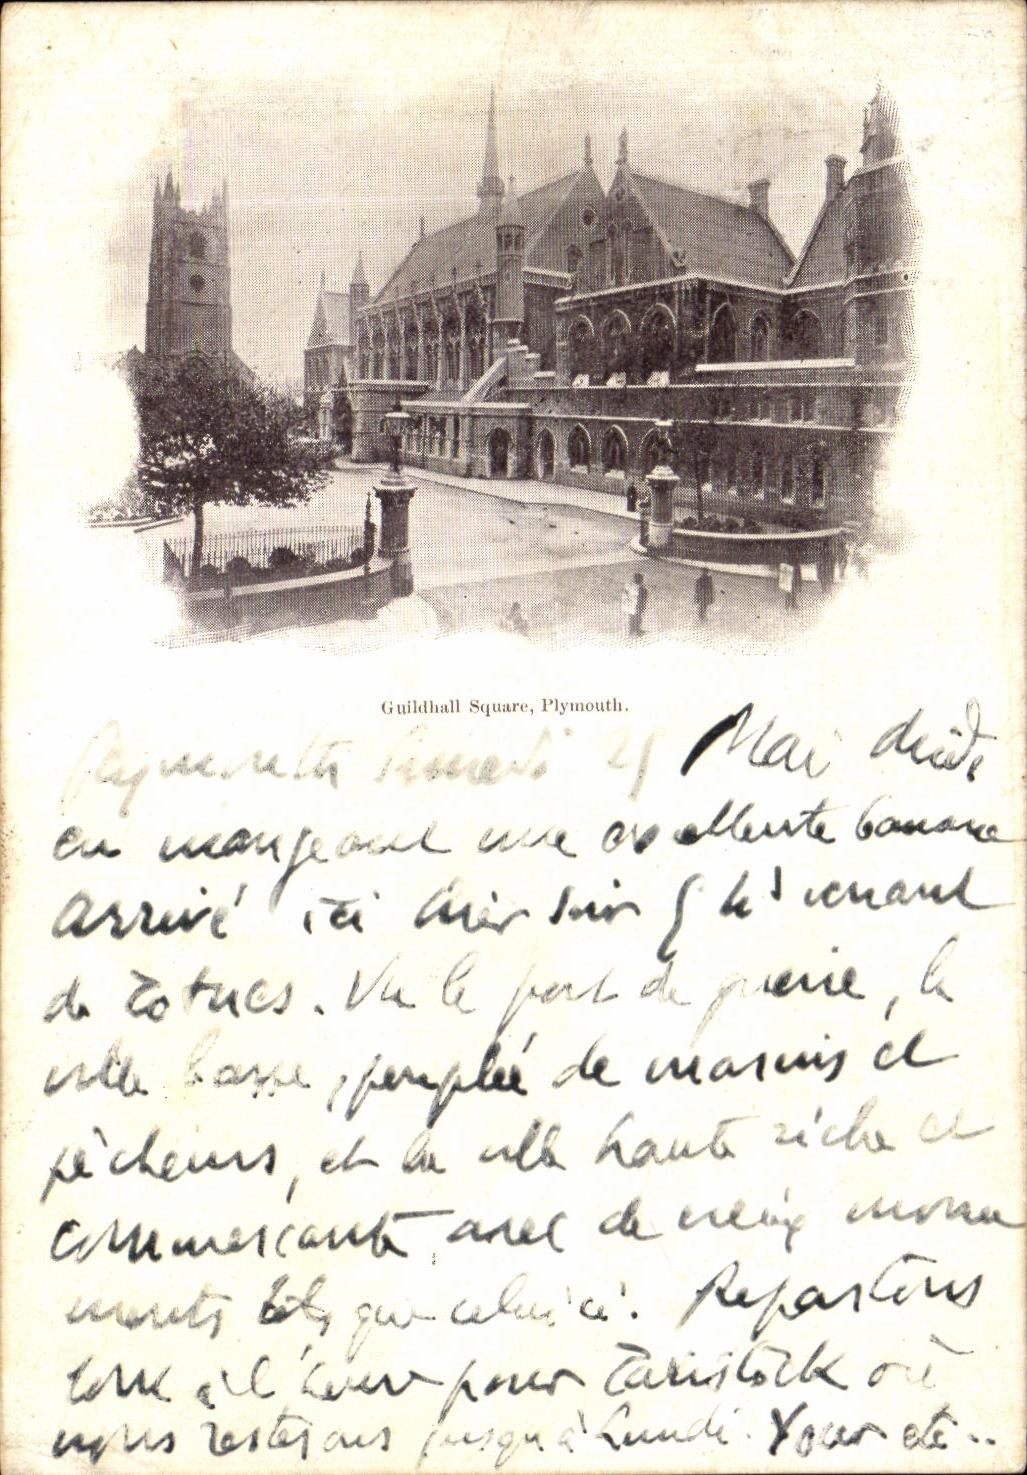 Guildhall Square, Plymouth.
Plymouth Samedi Mai
en mangeant une excellente banane
Arrivé ici hier soir venant
de Totnes. Vu le port de guerre, la
ville basse, peuplée de marins et
pêcheurs, et la ville haute riche et
commerçante avec de vieux monu
ments tels que celui ci. Repartons
tout à l'heure pour Tavistock où
nous resterons jusqu'à Lundi. Your etc..